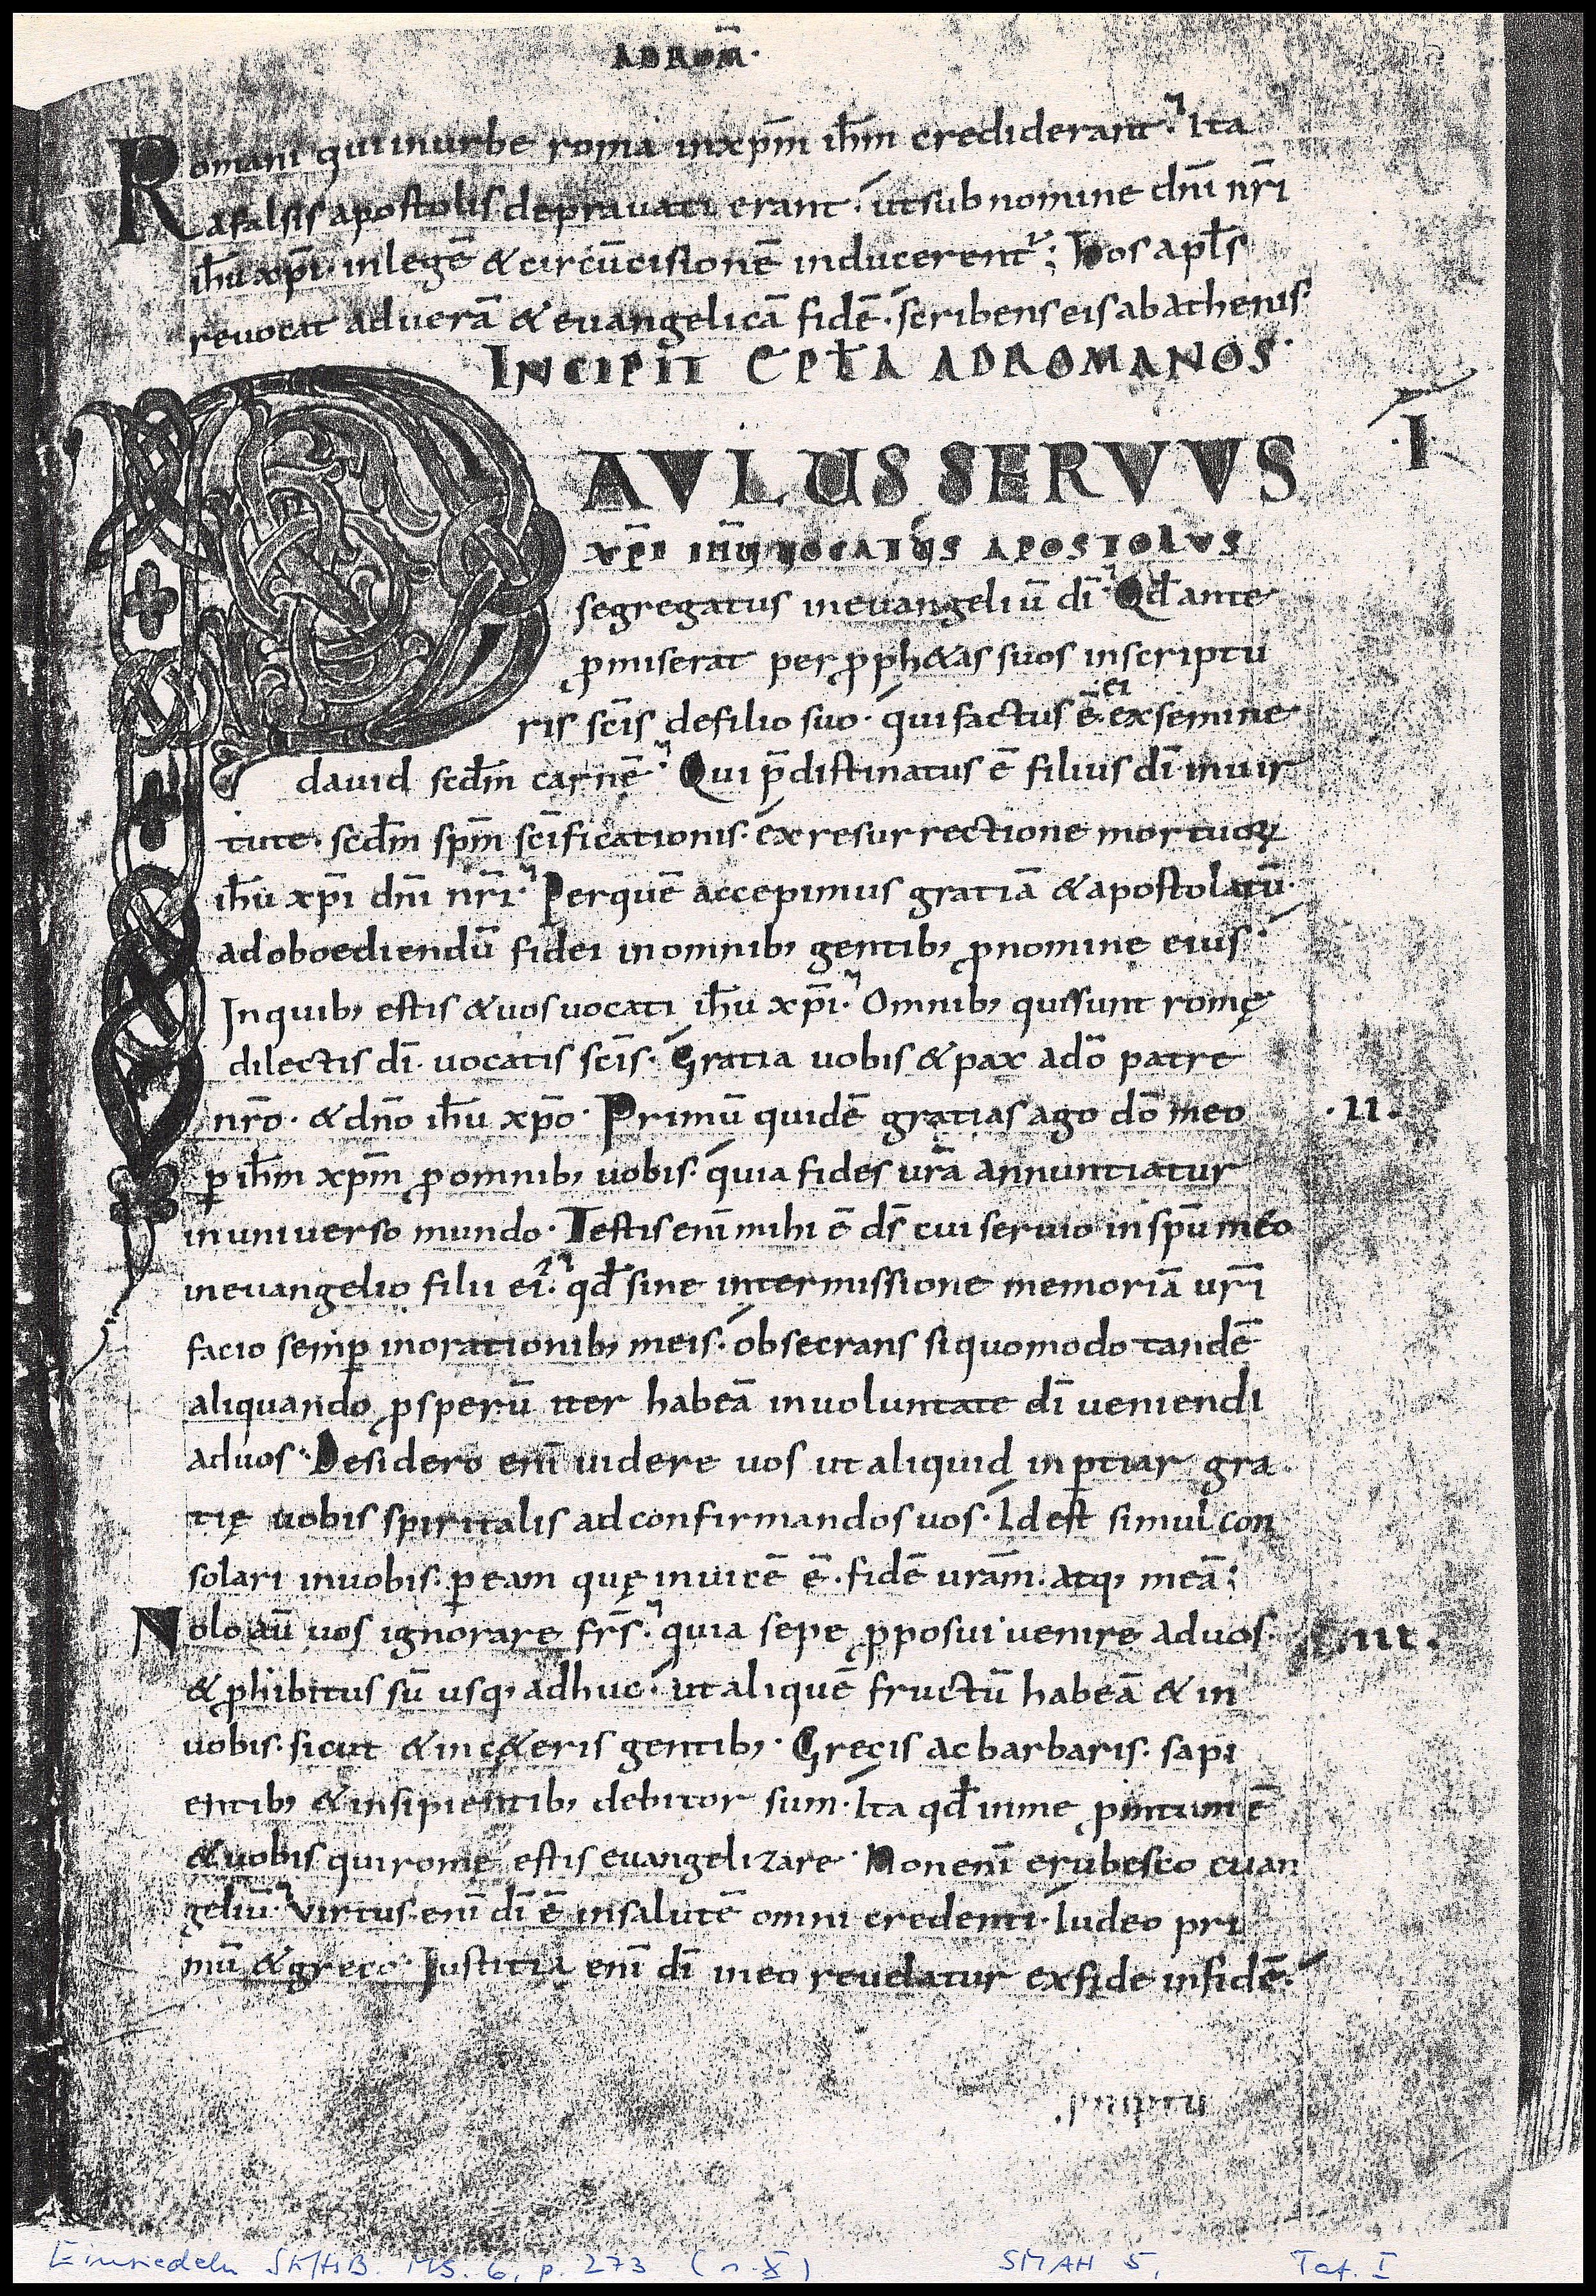 AD ROM̄.
Romani qui in urbe roma in xp̄m ih̄m crediderant. Ita
a falsis apostolis depravati erant. ut sub nomine dn̄i nr̄i
ih̄u xp̄i. in legē & circūcisionē inducerent᷑; hos apl̄s
revocat ad verā & evangelicā fidē. scribens eis ab athenis
INCIPIT EPL̄A AD ROMANOS.
I
PAULUS SERVUS
XP̄I IH̄U VOCATUS APOSTOLUS
segregatus in evangeliū dī. Qd̄ ante
ꝓmiserat per ꝓph&as suos in scriptu
ris sc̄is de filio suo. qui factus ē ei ex semine
david scdm̄ carnē. Qui p̄distinatus ē filius dī in vir
tute. scdm̄ sp̄m sc̄ificationis. ex resurrectione mortuoꝝ
ih̄u xp̄i dn̄i nr̄i. Per quē accepimus gratiā & apostolatū.
ad oboediendū fidei in omnib; gentib; ꝓ nomine eius.
In quib; estis & vos vocati ih̄u xp̄i. Omnib; qui sunt romę
dilectis dī. vocatis sc̄is. Gratia vobis & pax a dō patre
nr̄o. & dn̄o ih̄u xp̄o. Primū quidē gratias ago dō meo
.II.
ꝑ ih̄m xp̄m ꝓ omnib; vobis. quia fides vr̄a annuntiatur
in universo mundo. Testis enī mihi ē ds̄ cui servio in sp̄u meo
in evangelio filii ei᷒. qd̄ sine intermissione memoriā vr̄i
facio semꝑ in orationib; meis. obsecrans si quomodo tandē
aliquando ꝓsperū iter habeā in voluntate dī veniendi
ad vos. Desidero enī videre vos ut aliquid inꝑtiar gra
tię vobis spiritalis ad confirmandos vos. Id est simul con
solari in vobis. ꝑ eam quę invicē ē. fidē vr̄am. atq; meā;
Nolo aū vos ignorare fr̄s. quia sepe ꝓposui venire ad vos.
.III.
& ꝓhibitus sū usq; adhuc. ut aliquē fructū habeā & in
vobis. sicut & in c&eris gentib;. Grecis ac barbaris. sapi
entib; & insipientib; debitor sum. Ita qd̄ in me ꝓmtum ē
& vobis qui romę estis evangelizare. Non enī erubesco evan
geliū. Virtus enī dī ē in salutē omni credenti. Iudeo pri
mū & greco. Justitia enī dī in eo revelatur ex fide in fidē.
Einsiedeln SK/HB. MS. 6, p. 273 (n. X)
SMAH 5, Taf. I